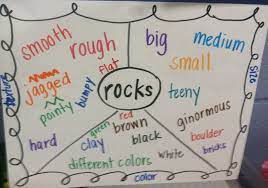 smooth
rough
flat
jagged
pointy
bumpy
texture
big
medium
small
teeny
ginormous
boulder
size
rocks
hard
clay
green
red
brown
black
different colors
white
bricks
color